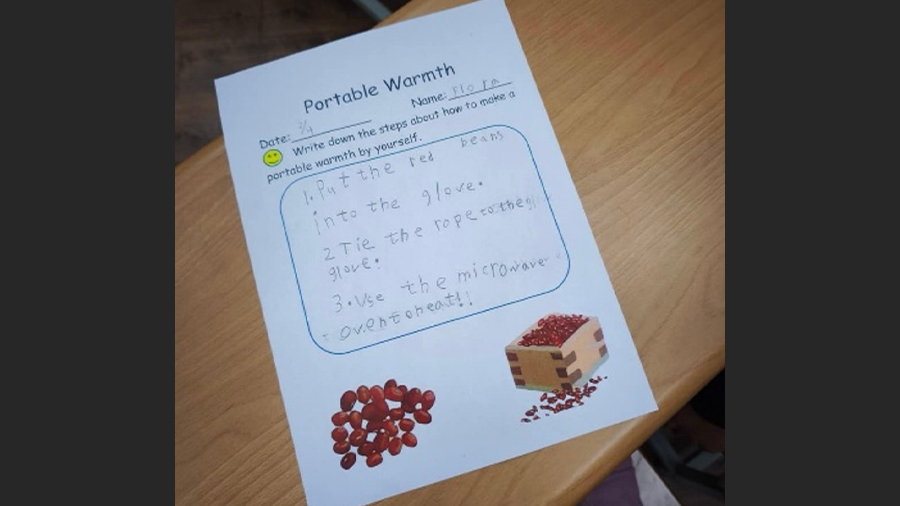 Portable Warmth
Date: 3/4 Name: Flora
Write down the steps about how to make a
portable warmth by yourself.
1. Put the red beans
into the glove.
2 Tie the rope to the
glove.
3. Use the microwave
oven to heat!!